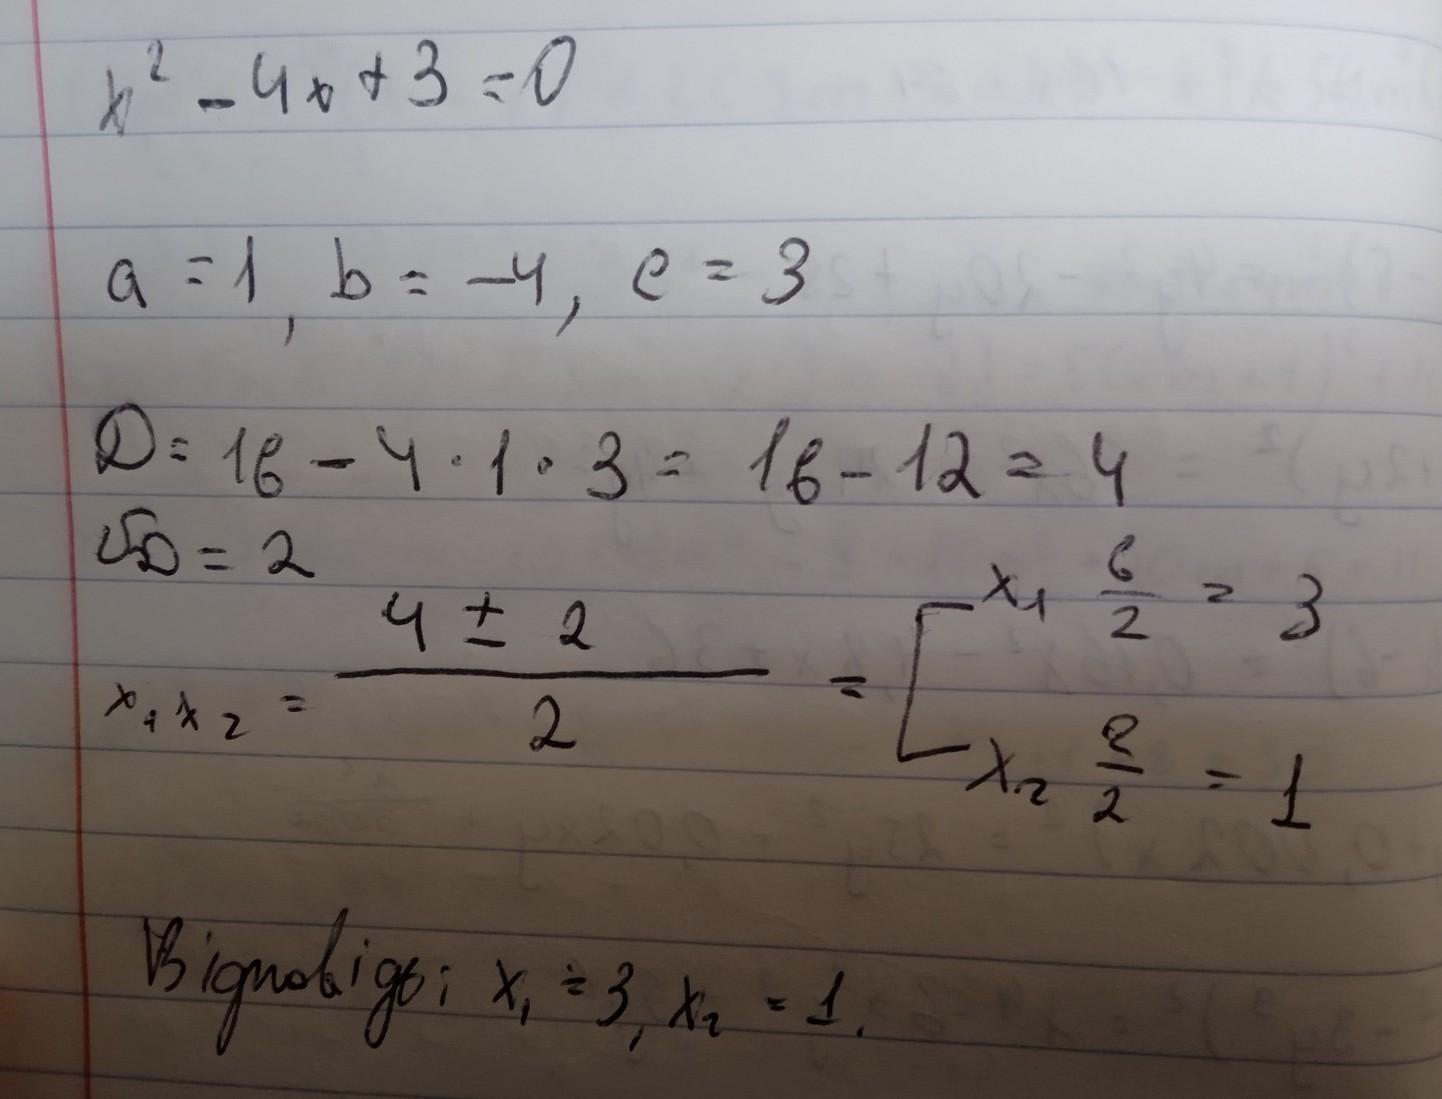 x² - 4x + 3 = 0
a = 1, b = -4, c = 3
D = 16 - 4 · 1 · 3 = 16 - 12 = 4
√D = 2
x₁ x₂ = (4 ± 2)/2 = [ x₁ 6/2 = 3
x₂ 2/2 = 1
Відповідь: x₁ = 3, x₂ = 1.